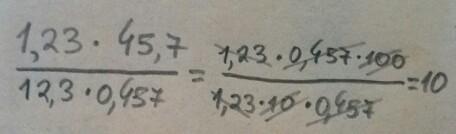 1,23 · 45,7 / 12,3 · 0,457 = 1,23 · 0,457 · 100 / 1,23 · 10 · 0,457 = 10